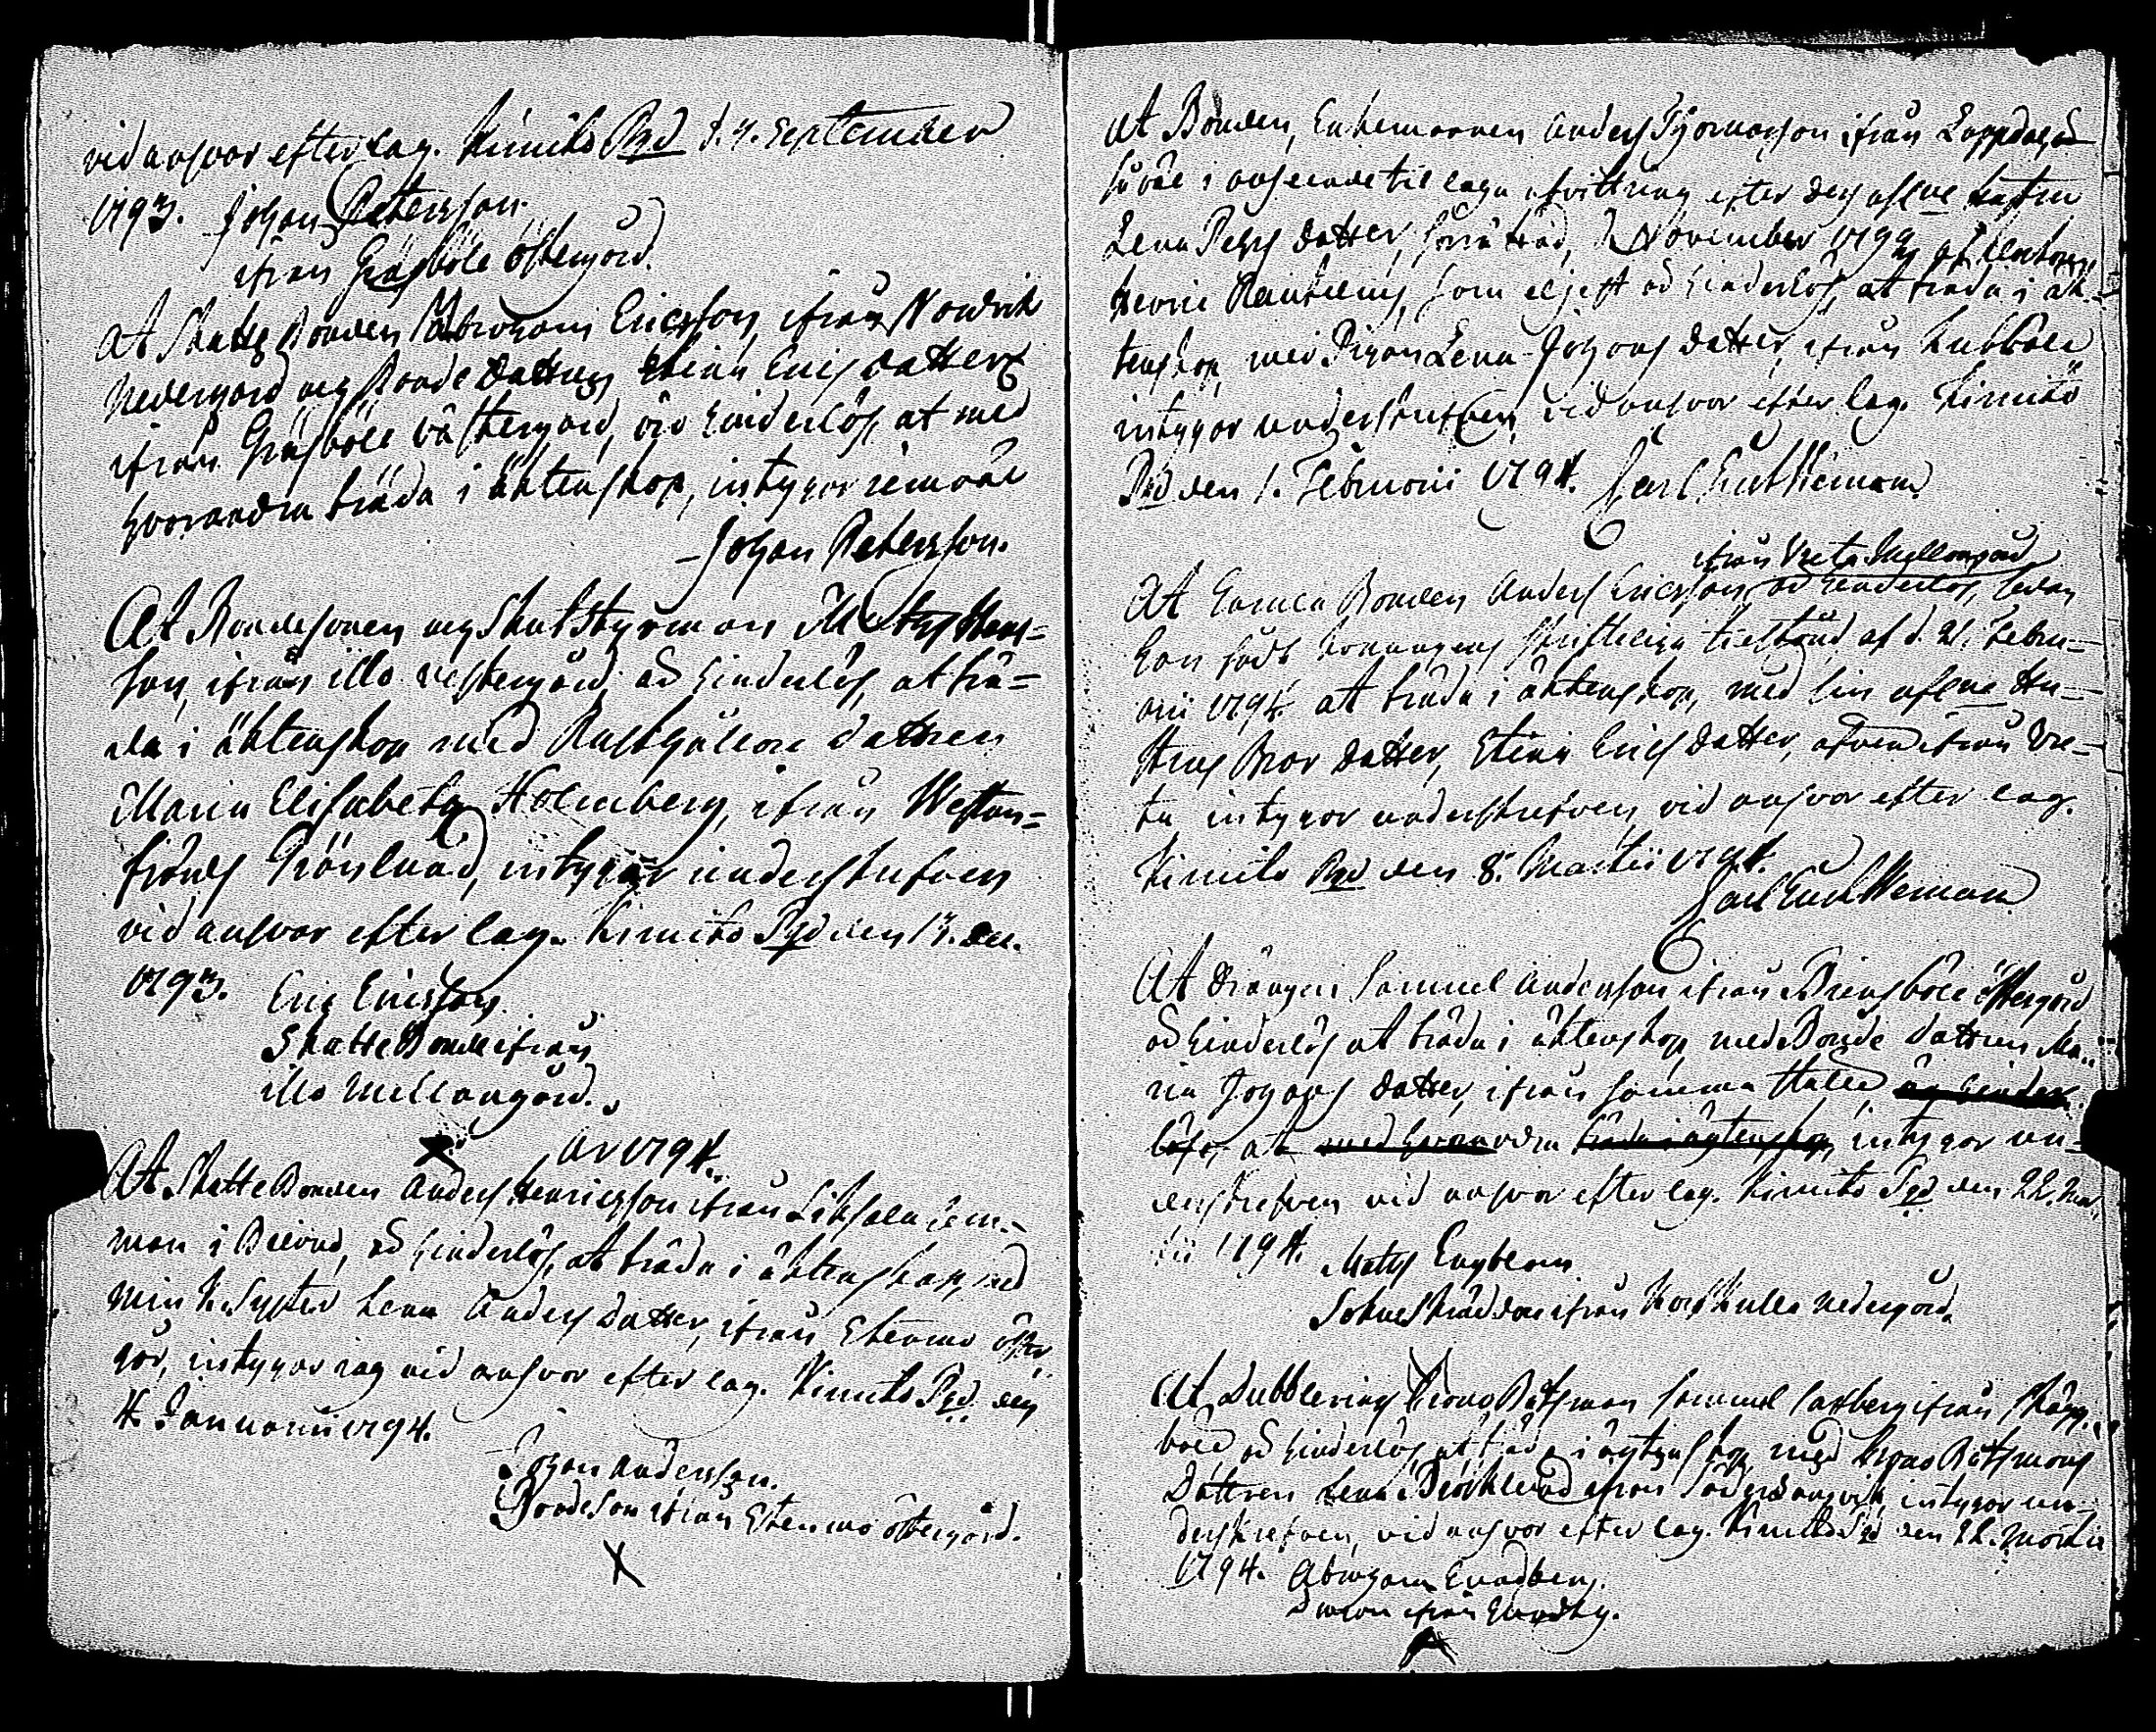 vid answar efter lag. Kimito Pgd d. 7. September
1793. Johan Petersson.
ifrån Gräsböle östergård.
At Skatte Bonden Abraham Ericsson, ifrån Nordvik
Nedergård og Bonde Dattren Stina Erics datter
ifrån Gräsböle västergård, äro hinderlös, at med
hvarandra träda i äktenskap, intygar jemväl
Johan Petersson.
At Bondesonen og Skutstyrman Matts Hans=
son, ifrån illo vestergård, är hinderlös, at trä=
da i äktenskap med Rusthållare dattren
Maria Elisabeth Holmberg, ifrån Westan=
fjärds Grönlund, intygar underskrefven
vid answar efter lag. Kimito Pgd den 13. Dec.
1793.
Eric Ericsson
Skatte Bonde ifrån
illo Mellangård.
Ar 1794.
At Skatte Bonden Anders Henricsson ifrån Liksala hem=
man i Billnäs, är hinderlös, at träda i äktenskap, med
min K. Syster Lena Anders datter, ifrån Stenmo öster
går, intygar jag vid answar efter lag. Kimito Pgd den
4. Januarii 1794.
Johan andersson.
Bondeson ifrån Stenmo östergård.
X
At Bonden, Enkemannen Anders ifrån Lappdal, är
så väl i anseende til laga afvittring efter des afledne hustru
Lena Pehrs datter, förrättad, d. November 179 af
som eljest är hinderlös, at träda i äk=
tenskap, med Pigan Lena Johans datter, ifrån Lubböle
intygar underskrefven, vid answar efter lag. Kimito
Pgd den 1. Februarii 1794. Carl Gust. Weman
ifrån Vreta Mellangård
At Enka Bonden Anders Ericsson, är hinderlös, sedan
han fådt Konungens skriftliga tilstånd af d. 21. Febru=
arii 1794. at träda i äktenskap, med sin aflidne Hu=
strus Bror datter, Stina Erics datter, äfven ifrån Vre=
ta intygar underskrefven, vid answar efter lag.
Kimito Pgd den 8. Martii 1794.
Carl Gust. Weman
At drängen Samuel Andersson ifrån Brensböle östergård
är hinderlös at träda i äktenskap med Bonde dattren Ma=
ria Johans datter, ifrån samma ställe är hinder
lösa, at med hvarandra träda i ägtenskap, intygar un=
derskrefven vid answar efter lag. Kimito Pgd den 22. Mar
tii 1794.
Matts Engblom
Sokneskräddare ifrån Norrkulla nedergård.
At Dubblerings Krono Båtsman Samuel Saxberg ifrån Skogs
böle är hinderlös, at träda i ägtenskap, med Krono Båtsmans
Dattren Lena Björklund ifrån Söder sungvik, intygar un=
derskrefven, vid answar efter lag. Kimito Pgd den 22. Martii
1794. Abraham Sundberg.
ifrån Sundby.